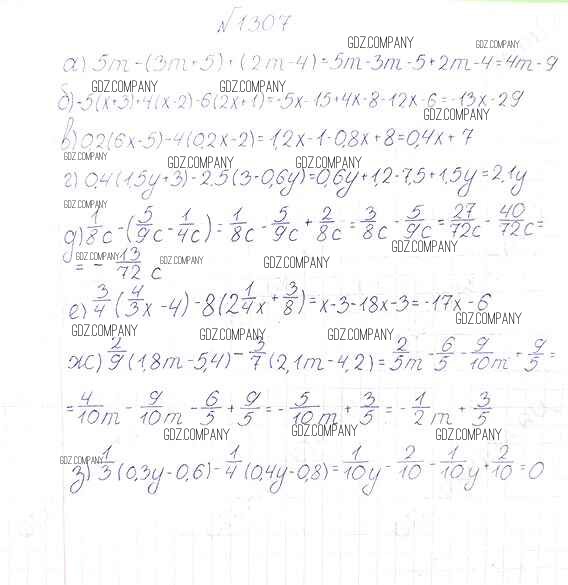 №1307
GDZ.COMPANY
GDZ.COMPANY
а) 5m-(3m+5)+(2m-4)=5m-3m-5+2m-4=4m-9
GDZ.COMPANY GDZ.COMPANY
б)-5(x+3)+4(x-2)-6(2x+1)=-5x-15+4x-8-12x-6=-13x-29
GDZ.COMPANY
в)0,2(6x-5)-4(0,2x-2)=1,2x-1-0,8x+8=0,4x+7
GDZ.COMPANY GDZ.COMPANY GDZ.COMPANY
г) 0,4(1,5y+3)-2,5(3-0,6y)=0,6y+1,2-7,5+1,5y=2,1y
GDZ.COMPANY
д) 1/8 c-(5/9 c-1/4 c)=1/8 c-5/9 c+2/8 c=3/8 c-5/9 c=27/72 c-40/72 c=
GDZ.COMPANY
=-13/72 c
GDZ.COMPANY GDZ.COMPANY GDZ.COMPANY
е) 3/4 (4/3 x-4)-8(2 1/4 x+3/8)=x-3-18x-3=-17x-6
GDZ.COMPANY
GDZ.COMPANY GDZ.COMPANY GDZ.COMPANY
ж) 2/9 (1,8m-5,4)-3/7 (2,1m-4,2)=2/5 m-6/5-9/10 m+9/5=
=4/10 m-9/10 m-6/5+9/5=-5/10 m+3/5=-1/2 m+3/5
GDZ.COMPANY GDZ.COMPANY GDZ.COMPANY
GDZ.COMPANY
з) 1/3 (0,3y-0,6)-1/4 (0,4y-0,8)=1/10 y-2/10-1/10 y+2/10=0